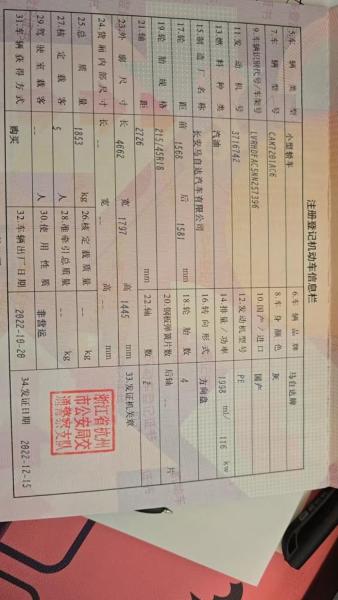 注册登记机动车信息栏
5.车辆类型 小型轿车 6.车辆品牌 马自达牌
7.车辆型号 CAM7201AC6 8.车身颜色 灰
9.车辆识别代号/车架号 LVRHDFAC5NN257396 10.国产/进口 国产
11.发动机号 3716742 12.发动机型号 PE
13.燃料种类 汽油 14.排量/功率 1998 ml/ 116 kw
15.制造厂名称 长安马自达汽车有限公司 16.转向形式 方向盘
17.轮距 前 1568 后 1581 mm 18.轮胎数 4
19.轮胎规格 215/45R18 20.钢板弹簧片数 后轴 -- 片
21.轴距 2726 mm 22.轴数 2
23.外廓尺寸 长 4662 宽 1797 高 1445 mm 33.发证机关章
24.货厢内部尺寸 长 -- 宽 -- 高 -- mm
25.总质量 1853 kg 26.核定载质量 -- kg
27.核定载客 5 人 28.准牵引总质量 -- kg
29.驾驶室载客 -- 人 30.使用性质 非营运
31.车辆获得方式 购买 32.车辆出厂日期 2022-10-28 34.发证日期 2022-12-15
浙江省杭州
市公安局交
通警察支队